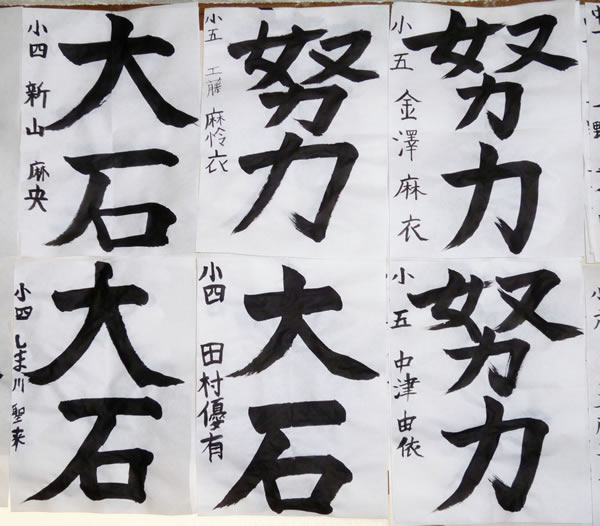 努力
小五 金澤麻衣
努力
小五 工藤麻怜衣
大石
小四 新山麻央
努力
小五 中津由依
大石
小四 田村優有
大石
小四 しま川聖来